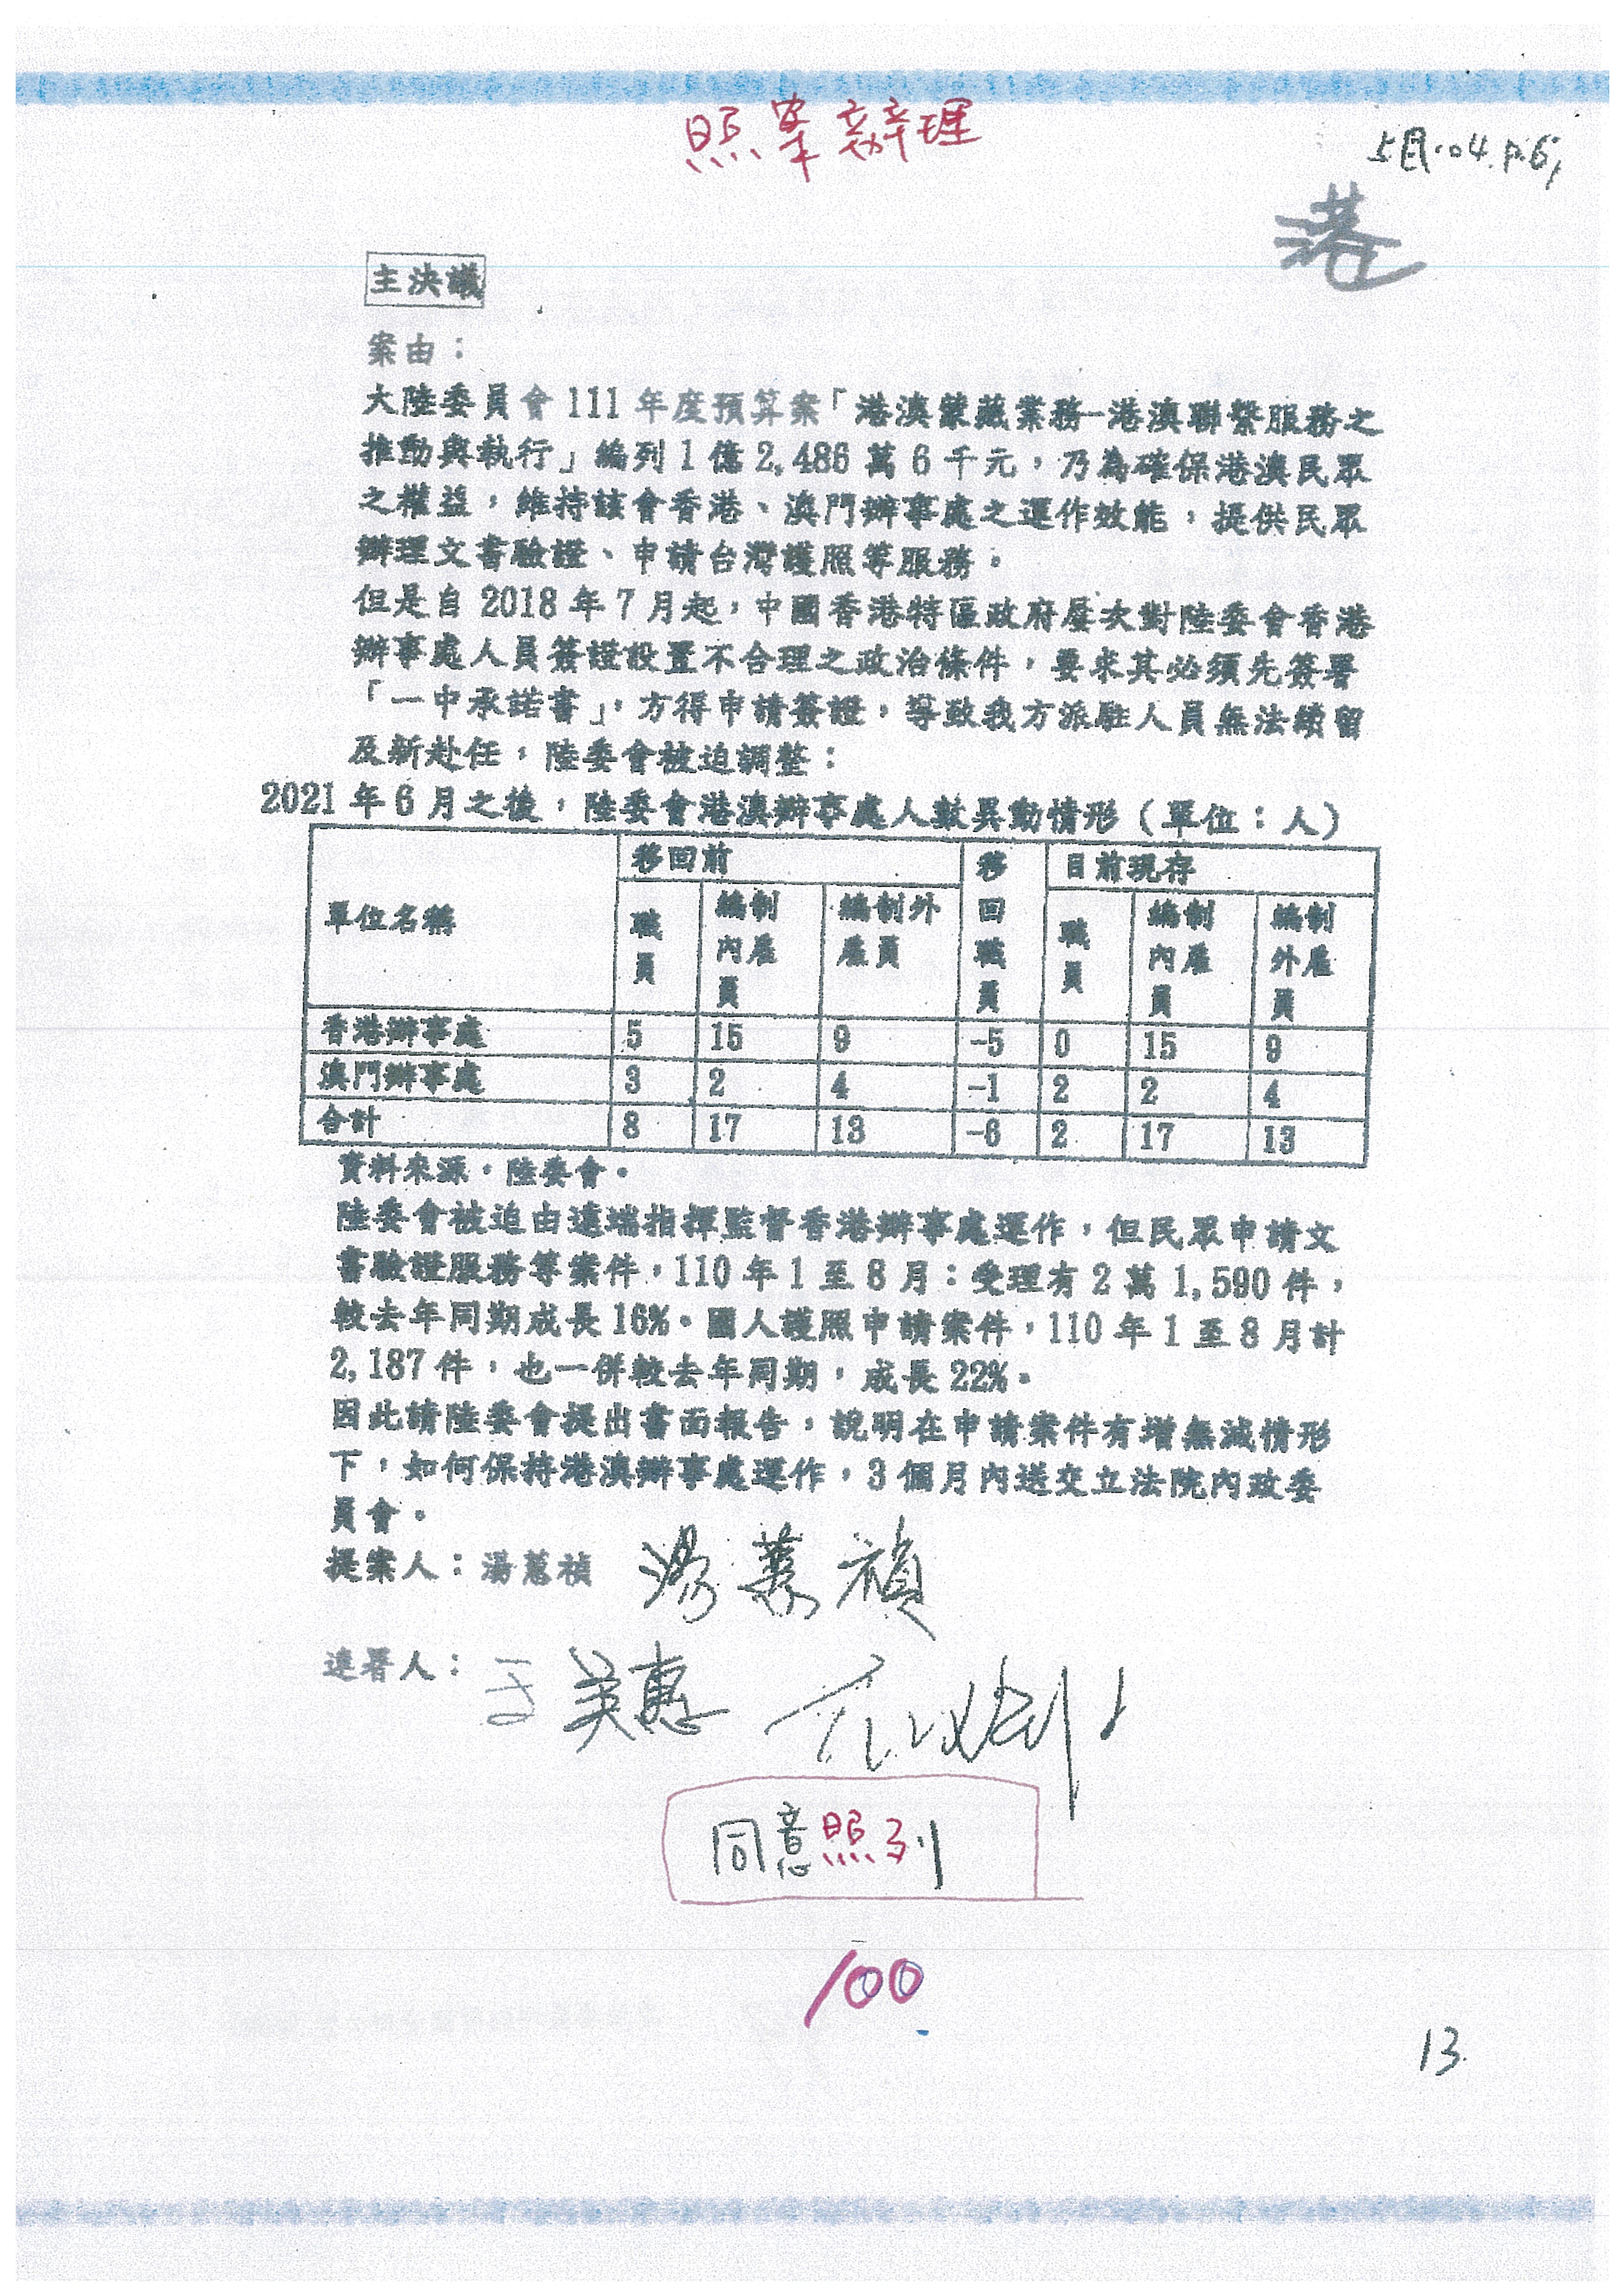 照案辦理
港
主決議
案由：
大陸委員會 111 年度預算案「港澳蒙藏業務-港澳聯繫服務之
推動與執行」編列 1 億 2,486 萬 6 千元，乃為確保港澳民眾
之權益，維持該會香港、澳門辦事處之運作效能，提供民眾
辦理文書驗證、申請台灣護照等服務。
但是自 2018 年 7 月起，中國香港特區政府屢次對陸委會香港
辦事處人員簽證設置不合理之政治條件，要求其必須先簽署
「一中承諾書」，方得申請簽證，導致我方派駐人員無法續留
及新赴任，陸委會被迫調整：
2021 年 6 月之後，陸委會港澳辦事處人數異動情形（單位：人）
單位名稱 移回前 移回職員 目前現存
職員 編制內雇員 編制外雇員 職員 編制內雇員 編制外雇員
香港辦事處 5 15 9 -5 0 15 9
澳門辦事處 3 2 4 -1 2 2 4
合計 8 17 13 -6 2 17 13
資料來源，陸委會。
陸委會被迫由遠端指揮監督香港辦事處運作，但民眾申請文
書驗證服務等案件，110 年 1 至 8 月：受理有 2 萬 1,590 件，
較去年同期成長 16%。國人護照申請案件，110 年 1 至 8 月計
2,187 件，也一併較去年同期，成長 22%。
因此請陸委會提出書面報告，說明在申請案件有增無減情形
下，如何保持港澳辦事處運作，3 個月內送交立法院內政委
員會。
提案人：湯蕙禎 湯蕙禎
連署人： 王美惠
同意照列
100
13